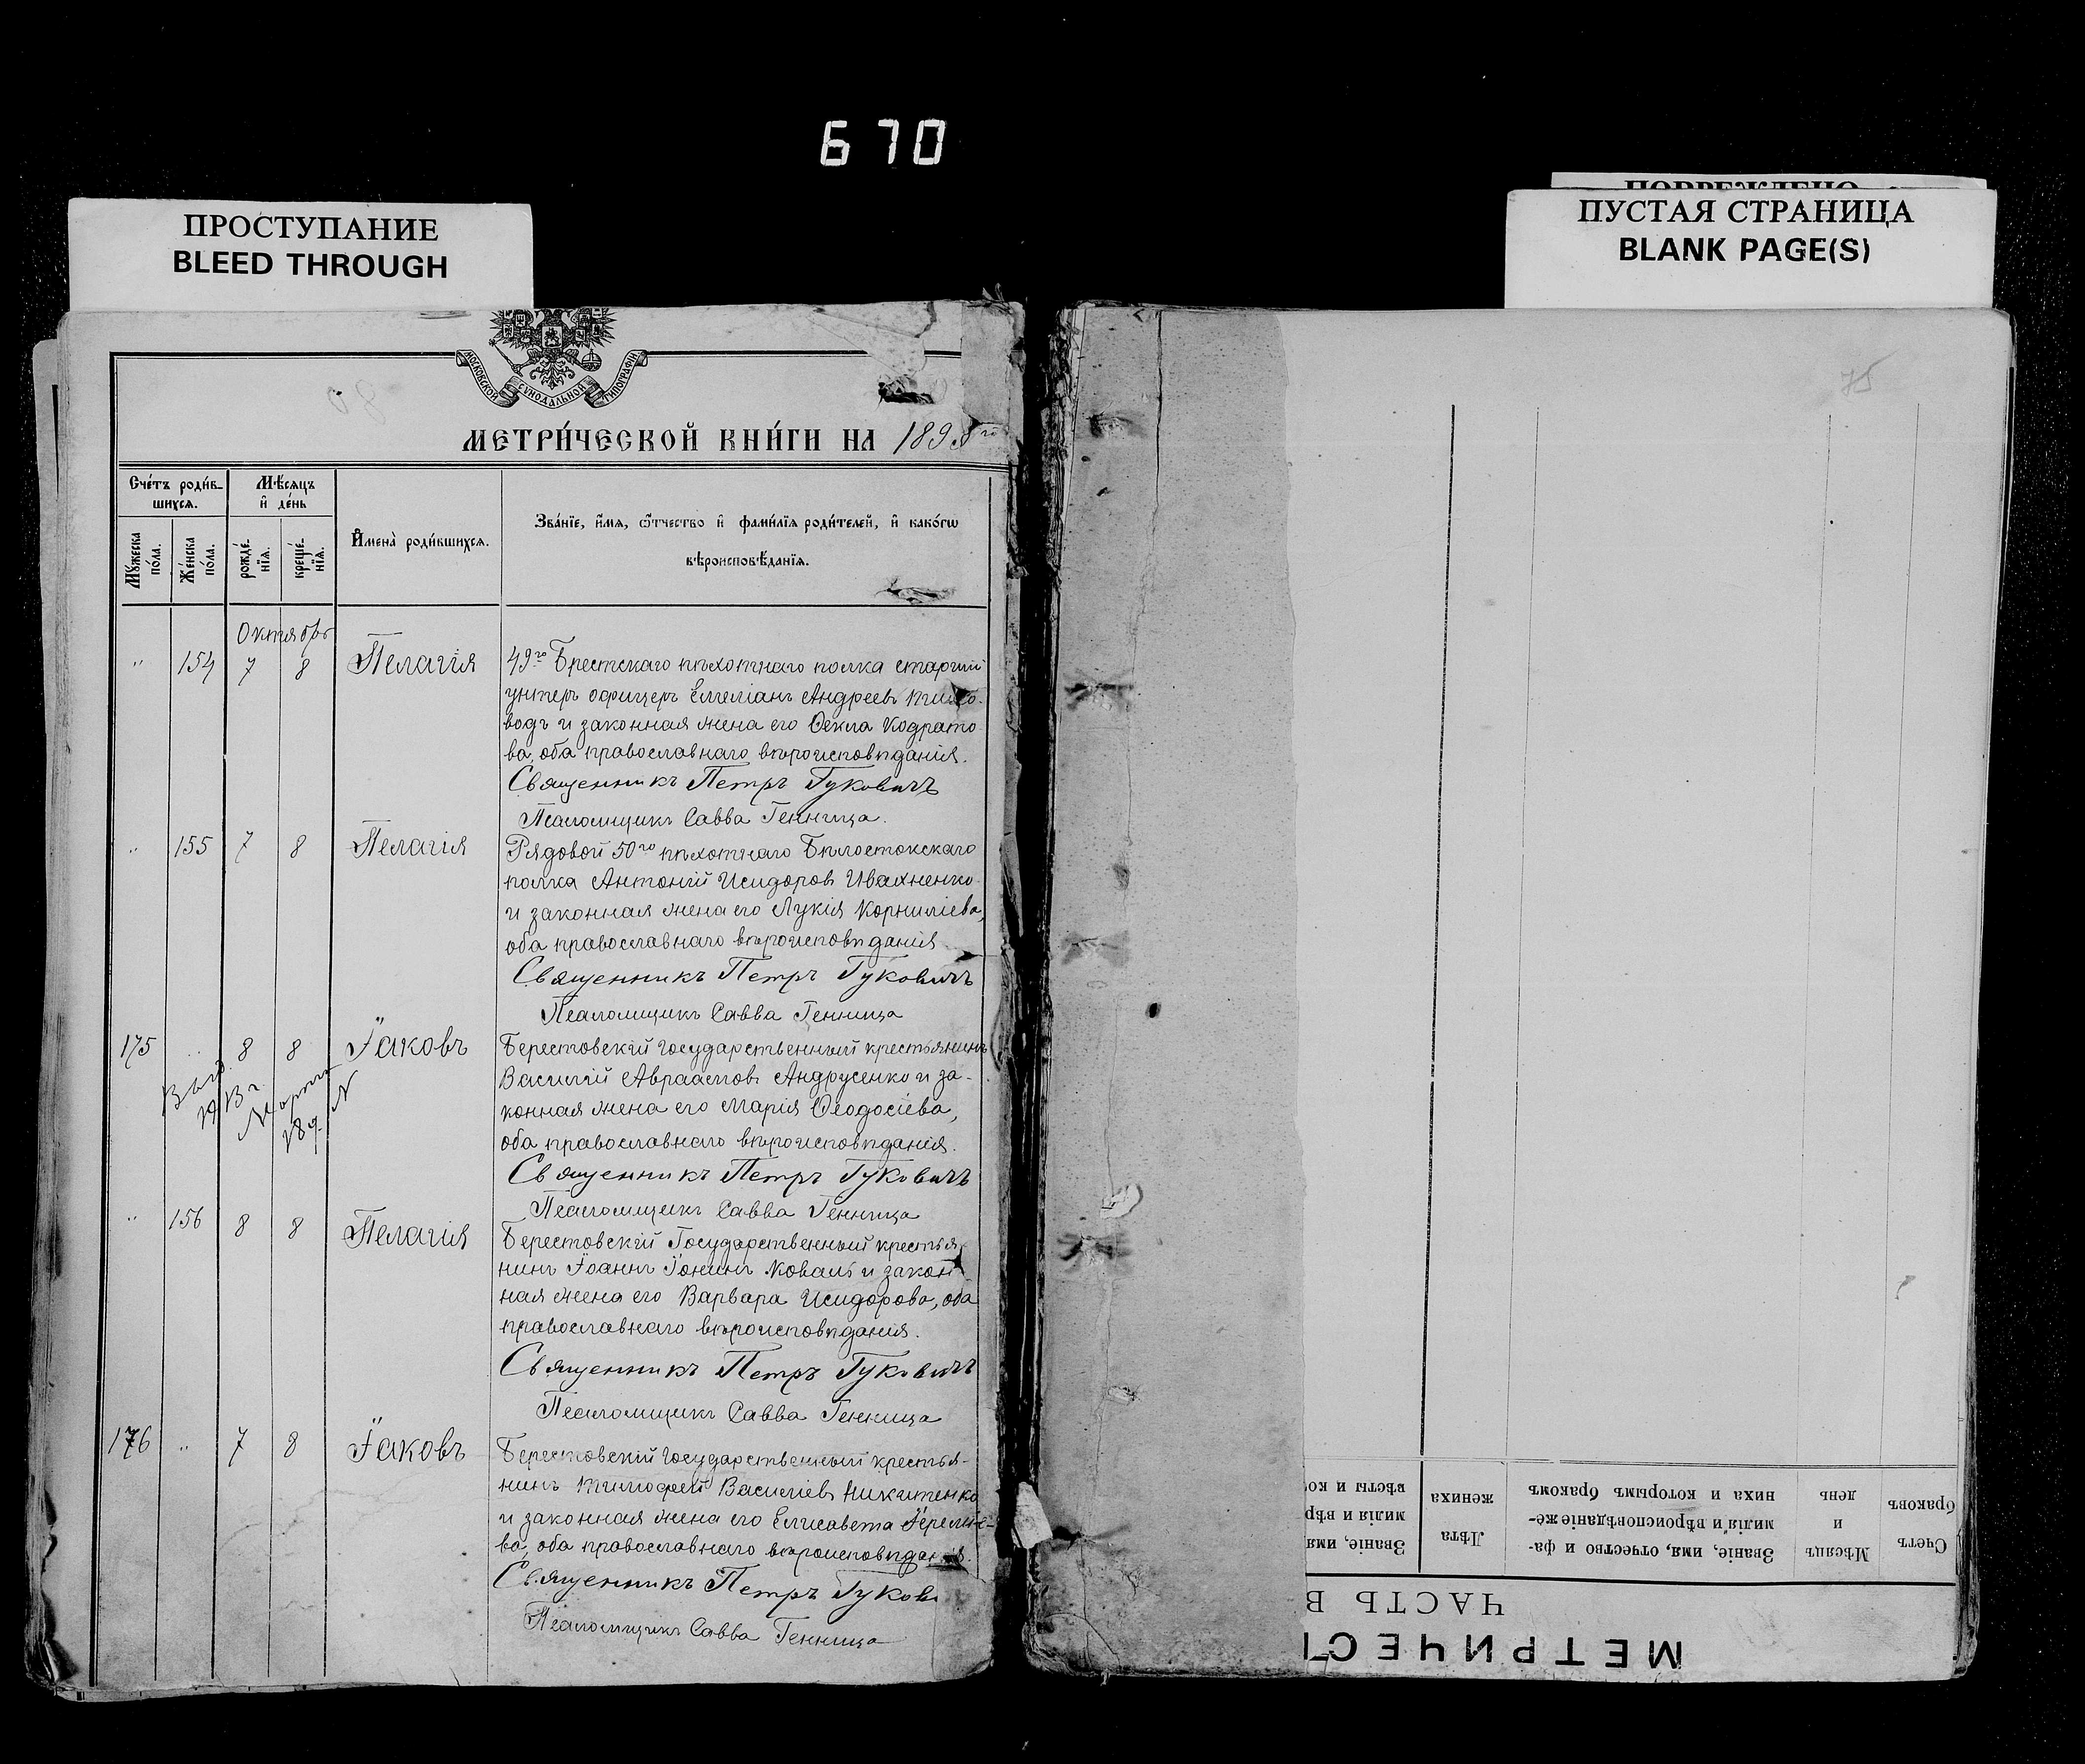 670
ПРОСТУПАНИЕ
BLEED THROUGH
ПОВРЕЖДЕНО
ПУСТАЯ СТРАНИЦА
BLANK PAGE(S)
МОСКОВСКОЙ СУНОДАЛЬНОЙ ТИПОГРАФІИ
75
МЕТРИ́ЧЕСКОЙ КНИ́ГИ НА 1898 го
Сче́тъ роди́в-
шихся.
Мѣ́сяцъ
и҆ де́нь
Мꙋ́жеска
по́ла.
Же́нска
по́ла.
рожде́-
нїя.
креще́-
нїя.
И҆мена̀ роди́вшихся.
Зва́нїе, и҆́мя, ѻ҆́тчество и҆ фами́лїя роди́телей, и҆ како́гѡ
вѣроисповѣ́данїя.
Октябрь
" 154 7 8 Пелагія 49го Брестскаго пѣхотнаго полка старшій
унтеръ офицеръ Емеліанъ Андреевъ
водъ и законная жена его Ѳекла Кодрато-
ва, оба православнаго вѣроисповѣданія.
Священникъ Петръ Гуковичъ
Псаломщикъ Савва Генница.
" 155 7 8 Пелагія Рядовой 50го пѣхотнаго Бѣлостокскаго
полка Антоній Исидоровъ Ивахненко
и законная жена его Лукія Корниліева,
оба православнаго вѣроисповѣданія
Священникъ Петръ Гуковичъ
Псаломщикъ Савва Генница
175 " 8 8 Іаковъ Берестовскій государственный крестьянинъ
Василій Авраамовъ Андрусенко и за-
конная жена его Марія Ѳеодосіева,
оба православнаго вѣроисповѣданія.
Священникъ Петръ Гуковичъ
Псаломщикъ Савва Генница
Выд.
1913 г.
Марта
28 д. №
" 156 8 8 Пелагія Берестовскій Государственный крестья-
нинъ Іоаннъ Іонинъ Коваль и закон-
ная жена его Варвара Исидорова, оба
православнаго вѣроисповѣданія.
Священникъ Петръ Гуковичъ
Псаломщикъ Савва Генница
176 " 7 8 Іаковъ Берестовскій государственный крестья-
нинъ Тимофей Василіевъ Никитенко
и законная жена его Елисавета Іеремі-
ва, оба православнаго вѣроисповѣданія.
Священникъ Петръ Гукови
Псаломщикъ Савва Генница
МЕТРИЧЕС
ЧАСТЬ В
Счетъ
браковъ
Мѣсяцъ
и
день
Званіе, имя, отчество и фа-
милія и вѣроисповѣданіе же-
ниха и которымъ бракомъ
Лѣта
жениха
Званіе, имя
милія и вѣр
вѣсты и ко